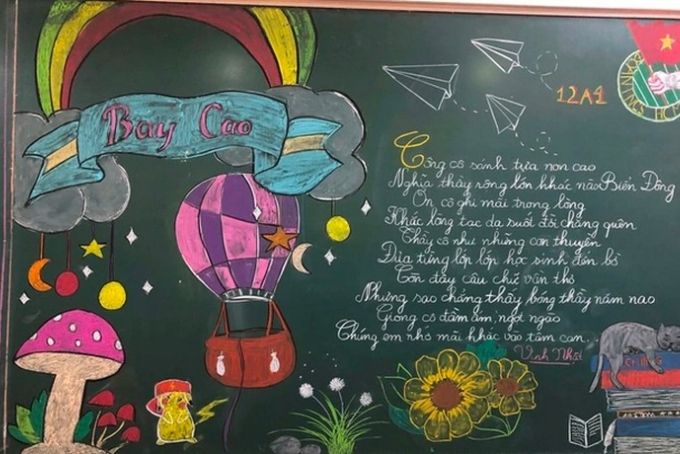 Bay Cao
12A1
Công cô sánh tựa non cao
Nghĩa thầy sông lớn khác nào Biển Đông
Ơn cô ghi mãi trong lòng
Khắc lòng tạc dạ suốt đời chẳng quên
Thầy cô như những con thuyền
Đưa từng lớp lớp học sinh đến bờ
Còn đây câu chữ vần thơ
Nhưng sao chẳng thấy bóng thầy năm nao
Giọng cô trầm ấm, ngọt ngào
Chúng em nhớ mãi khắc vào tâm can...
Vinh Nhật